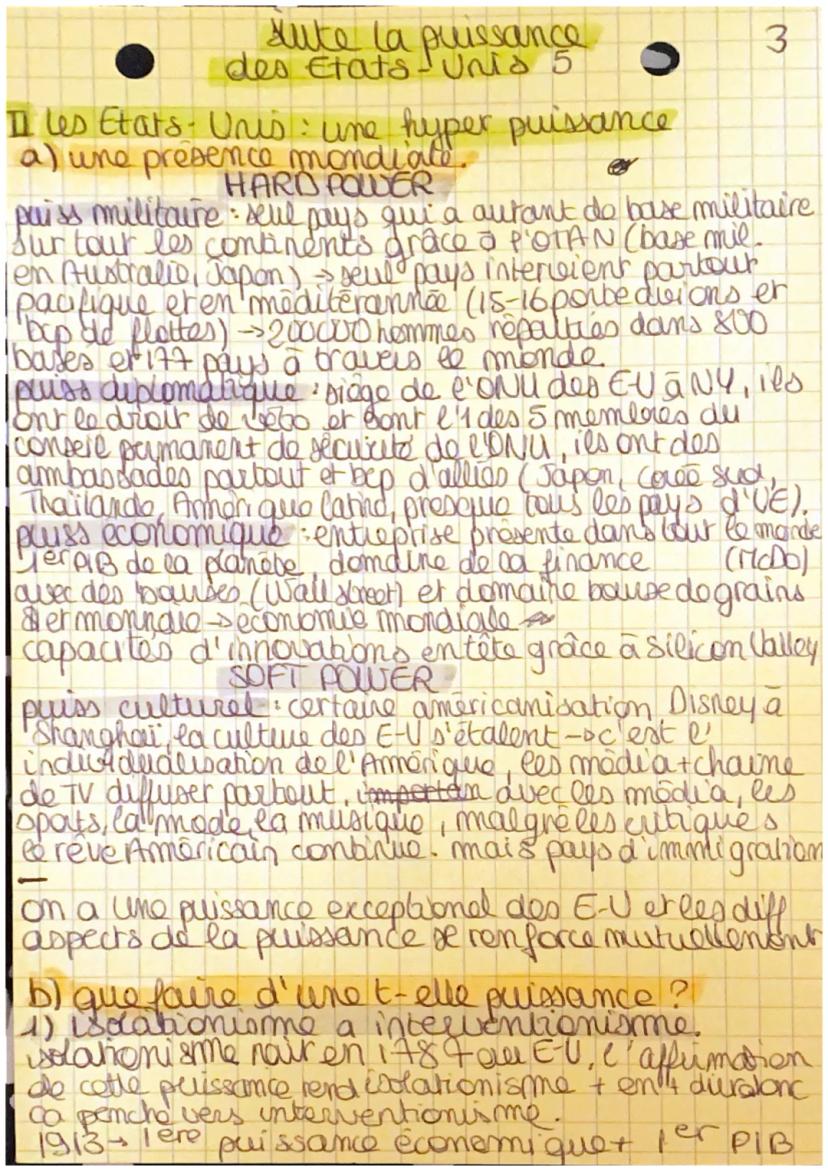 suite la puissance
des Etats-Unis 5
3
II Les Etats-Unis : une hyper puissance
a) une présence mondiale.
HARD POWER
puiss militaire : seul pays qui a autant de base militaire
sur tout les continents grâce à l'OTAN (base mil.
en Australie, Japon) → seul pays intervient partout
pacifique et en méditérannée (15-16 porte divions et
bcp de flottes) → 200000 hommes répartiés dans 800
bases et 177 pays à travers le monde.
puiss diplomatique : siège de l'ONU des E-U à NY, ils
ont le droit de véto et sont l'1 des 5 membres du
conseil permanent de sécurité de l'ONU, ils ont des
ambassades partout et bcp d'alliés (Japon, corée sud,
Thaïlande, Amérique latine, presque tous les pays d'UE).
puiss économique : entreprise présente dans tout le monde
(McDo)
1er PIB de la planète domaine de la finance
avec des bourses (Wall street) et domaine bourse de grains
et monnaie → économie mondiale
capacités d'innovations en tête grâce à Silicon Valley
SOFT POWER
puiss culturel : certaine américanisation Disney à
Shanghaï, la culture des E-U s'étalent → c'est l'
individualisation de l'Amérique, les média + chaine
de TV diffuser partout, avec les média, les
sports, la mode, la musique, malgré les critiques
le rêve Américain continue. mais pays d'immigration
on a une puissance exceptionel des E-U et les diff
aspects de la puissance se renforce mutuellement
b) que faire d'une t-elle puissance ?
1) isolationisme a interventionisme.
isolationisme nait en 1787 au E-U, l'affirmation
de cette puissance rend isolationisme + en + donc
ça penche vers interventionisme.
1913 → 1ère puissance économique + 1er PIB